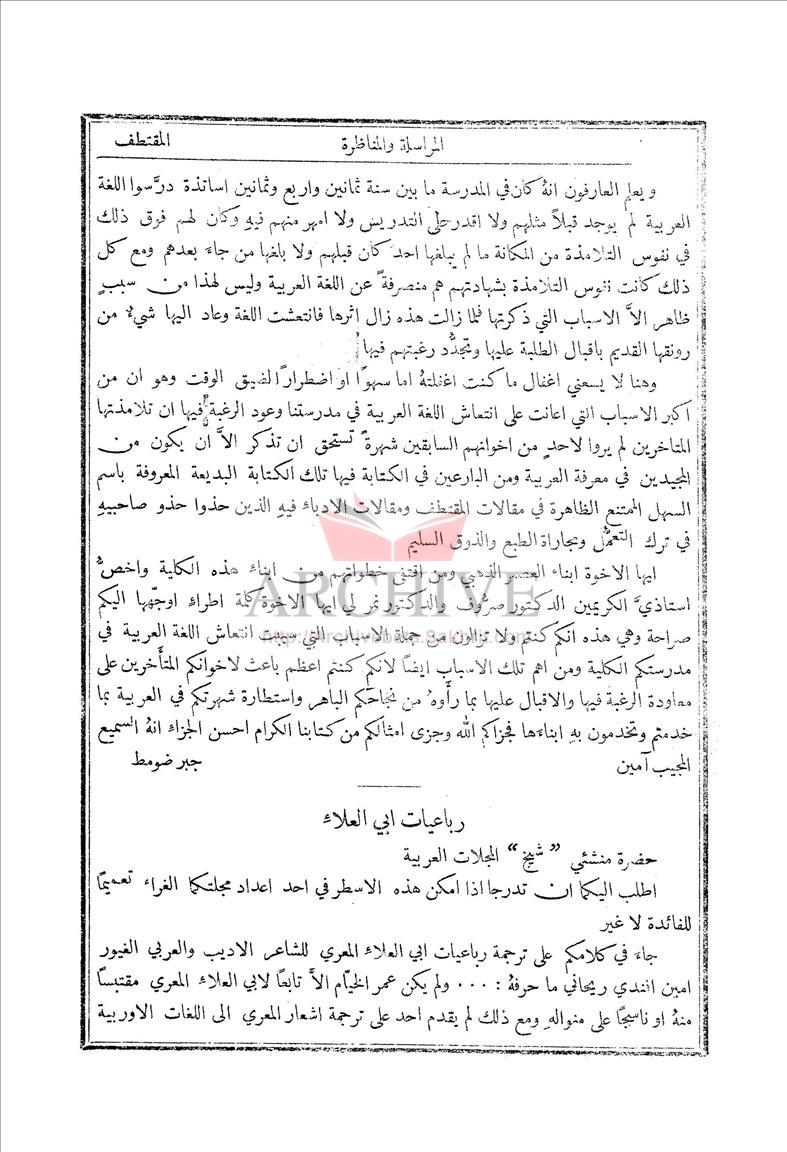 المراسلة والمناظرة
المقتطف
ويعلم العارفون انهُ كان في المدرسة ما بين سنة ثمانين واربع وثمانين اساتذة درَّسوا اللغة
العربية لم يوجد قبلاً مثلهم ولا اقدر على التدريس ولا امهر منهم فيهِ وكان لهم فوق ذلك
في نفوس التلامذة من المكانة ما لم يبلغها احد كان قبلهم ولا بلغها من جاءَ بعدهم ومع كل
ذلك كانت نفوس التلامذة بشهادتهم هم منصرفةً عن اللغة العربية وليس لهذا من سببٍ
ظاهر الاَّ الاسباب التي ذكرتها فلما زالت هذه زال اثرها فانتعشت اللغة وعاد اليها شيءٌ من
رونقها القديم باقبال الطلبة عليها وتجدُّد رغبتهم فيها
وهنا لا يسعني اغفال ما كنت اغفلتهُ اما سهوًا او اضطرارًا لضيق الوقت وهو ان من
اكبر الاسباب التي اعانت على انتعاش اللغة العربية في مدرستنا وعود الرغبة فيها ان تلامذتها
المتاخرين لم يروا لاحدٍ من اخوانهم السابقين شهرةً تستحق ان تذكر الاَّ ان يكون من
المجيدين في معرفة العربية ومن البارعين في الكتابة فيها تلك الكتابة البديعة المعروفة باسم
السهل الممتنع الظاهرة في مقالات المقتطف ومقالات الادباء فيهِ الذين حذوا حذو صاحبيهِ
في ترك التعمُّل ومجاراة الطبع والذوق السليم
ايها الاخوة ابناء العصر الذهبي ومن اقتفى خطواتهم من ابناء هذه الكلية واخصُّ
استاذيَّ الكريمين الدكتور صرُّوف والدكتور نمر لي ايها الاخوة كلمة اطراءٍ اوجّهها اليكم
صراحة وهي هذه انكم كنتم ولا تزالون من جملة الاسباب التي سببت انتعاش اللغة العربية في
مدرستكم الكلية ومن اهم تلك الاسباب ايضًا لانكم كنتم اعظم باعث لاخوانكم المتأَخرين على
معاودة الرغبة فيها والاقبال عليها بما رأَوهُ من نجاحكم الباهر واستطارة شهرتكم في العربية بما
خدمتم وتخدمون بهِ ابناءَها فجزاكم الله وجزى امثالكم من كتابنا الكرام احسن الجزاء انهُ السميع
المجيب آمين
جبر ضومط
رباعيات ابي العلاء
حضرة منشئي "شيخ" المجلات العربية
اطلب اليكما ان تدرجا اذا امكن هذه الاسطر في احد اعداد مجلتكما الغراء تعميمًا
للفائدة لا غير
جاءَ في كلامكم على ترجمة رباعيات ابي العلاء المعري للشاعر الاديب والعربي الغيور
امين افندي ريحاني ما حرفهُ : ٠٠٠ ولم يكن عمر الخيّام الاَّ تابعًا لابي العلاء المعري مقتبسًا
منهُ او ناسجًا على منوالهِ ومع ذلك لم يقدم احد على ترجمة اشعار المعري الى اللغات الاوربية
ARCHIVE